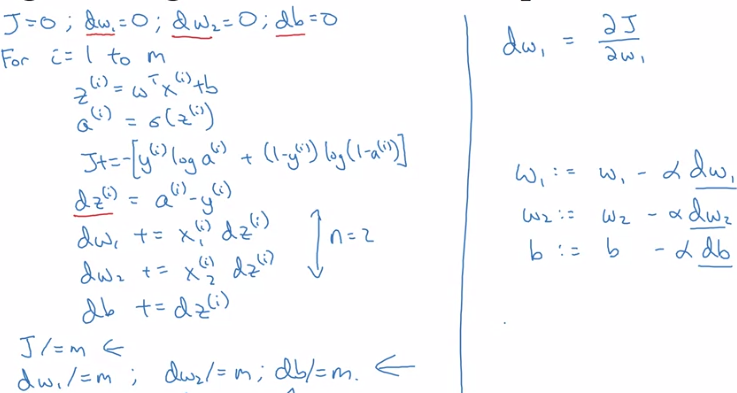 J=0 ; dw₁=0 ; dw₂=0 ; db=0
For i = 1 to m
z⁽ⁱ⁾ = ωᵀx⁽ⁱ⁾+b
a⁽ⁱ⁾ = σ(z⁽ⁱ⁾)
J+=-[y⁽ⁱ⁾ log a⁽ⁱ⁾ + (1-y⁽ⁱ⁾) log(1-a⁽ⁱ⁾)]
dz⁽ⁱ⁾ = a⁽ⁱ⁾-y⁽ⁱ⁾
dw₁ += x₁⁽ⁱ⁾ dz⁽ⁱ⁾
dw₂ += x₂⁽ⁱ⁾ dz⁽ⁱ⁾
n=2
db += dz⁽ⁱ⁾
J/=m ←
dw₁/=m ; dw₂/=m ; db/=m. ←
dw₁ = ∂J/∂w₁
w₁ := w₁ - α dw₁
w₂ := w₂ - α dw₂
b := b - α db